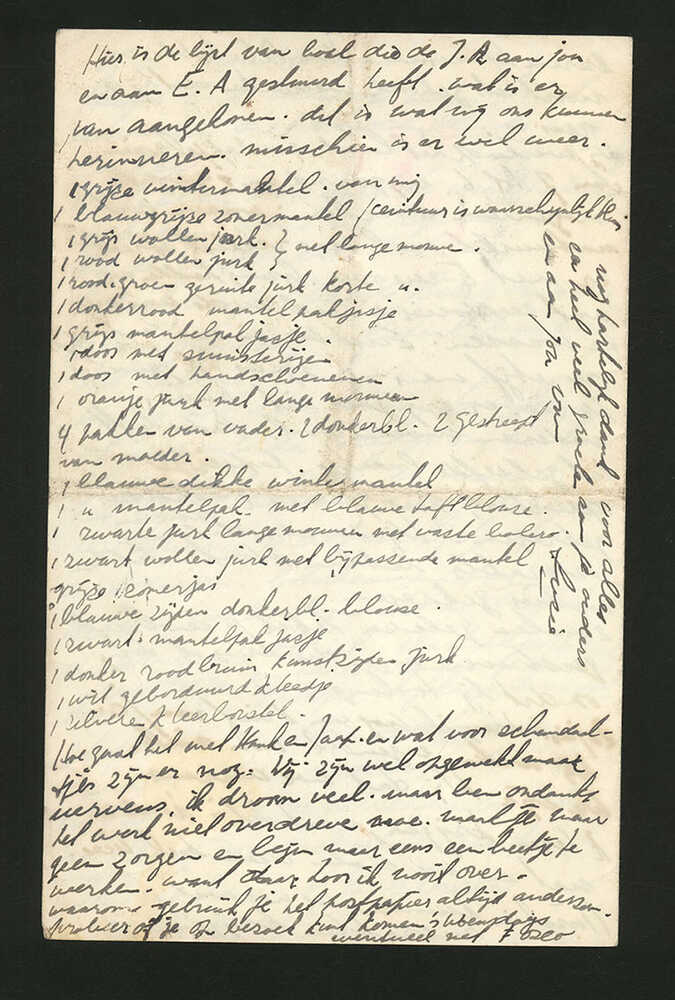 Hier is de lijst van boel die de J.R. aan jou
en aan E. A gestuurd heeft. wat is er
van aangekomen. dit is wat wij ons kunnen
herinneren. misschien is er wel meer.
1 grijze wintermantel. van mij
1 blauwgrijze zomermantel (ceintuur is waarschijnlijk
1 grijs wollen jurk. } met lange mouwe.
1 rood wollen jurk }
1 rood-groen geruite jurk korte u.
1 donkerrood mantelpakjasje
1 grijs mantelpak jasje.
1 doos met
1 doos met handschoenen
1 oranje jurk met lange mouwen
4 pakken van vader. 2 donkerbl. 2 gestreept
van moeder.
1 blauwe dikke winter mantel
1 u mantelpak. met blauwe taftblouse.
1 zwarte jurk lange mouwen met vaste bolero.
1 zwart wollen jurk met bijpassende mantel
grijze zomerjas
1 blauwe zijden donkerbl. blouse.
1 zwart mantelpak jasje
1 donker roodbruin kunstzijden jurk
1 wit geborduurd kleedje
1 zilveren kleerborstel.
Hoe gaat het met en Jaap. en wat voor schandaal-
tjes zijn er nog. Wij zijn wel opgewekt maar
nerveus, ik droom veel. maar ben ondanks
het werk niet overdreve moe. maak je maar
geen zorgen en begin maar eens een beetje te
werken. want daar hoor ik nooit over.
waarom gebruik je het postpapier altijd andersom.
probeer of je op bezoek kunt komen 's woensdags
eventueel met
nog hartelijk dank voor alles
en heel veel groete aan je ouders
en aan jou van Lucie